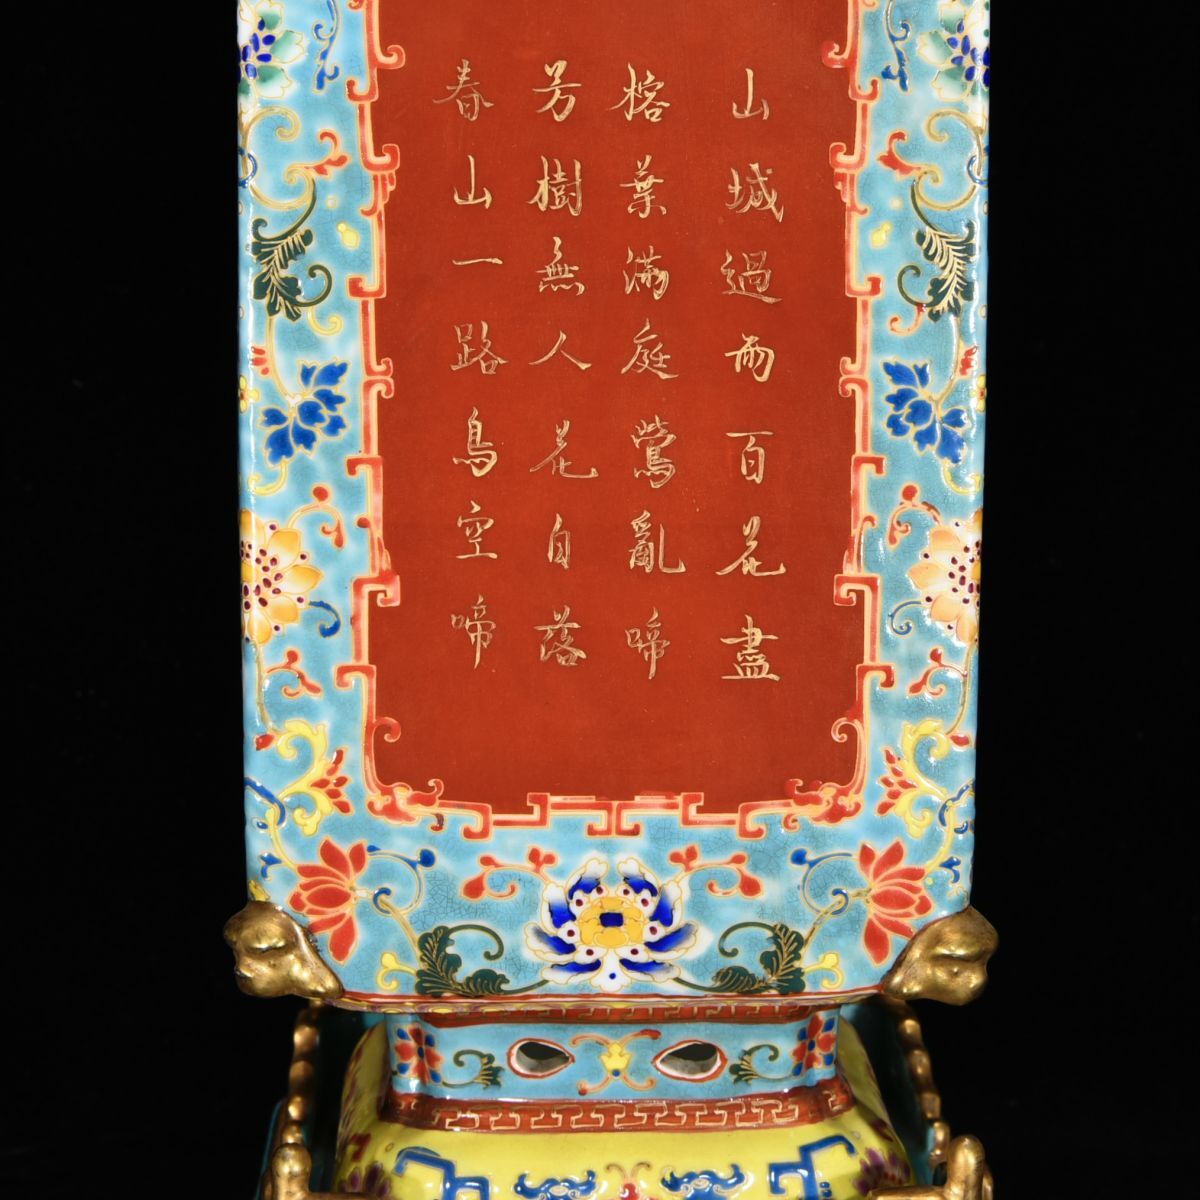 山城過雨百花盡
榕葉滿庭鶯亂啼
芳樹無人花自落
春山一路鳥空啼